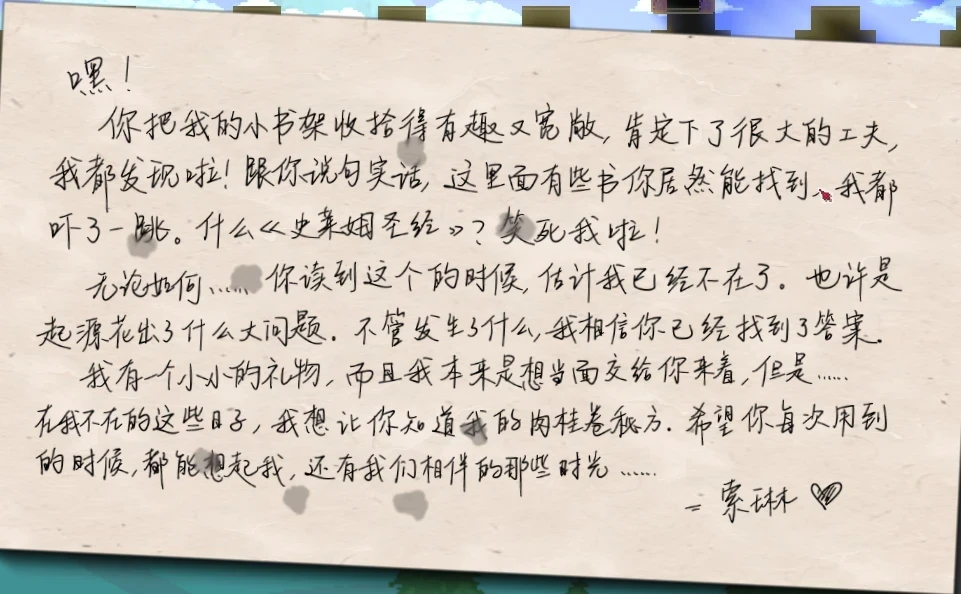 嘿！
你把我的小书架收拾得有趣又宽敞，肯定下了很大的工夫，
我都发现啦！跟你说句实话，这里面有些书你居然能找到、我都
吓了一跳。什么《史莱姆圣经》？笑死我啦！
无论如何……你读到这个的时候，估计我已经不在了。也许是
起源花出了什么大问题．不管发生了什么，我相信你已经找到了答案．
我有一个小小的礼物，而且我本来是想当面交给你来着，但是……
在我不在的这些日子，我想让你知道我的肉桂卷秘方．希望你每次用到
的时候，都能想起我，还有我们相伴的那些时光……
- 索琳 ♡